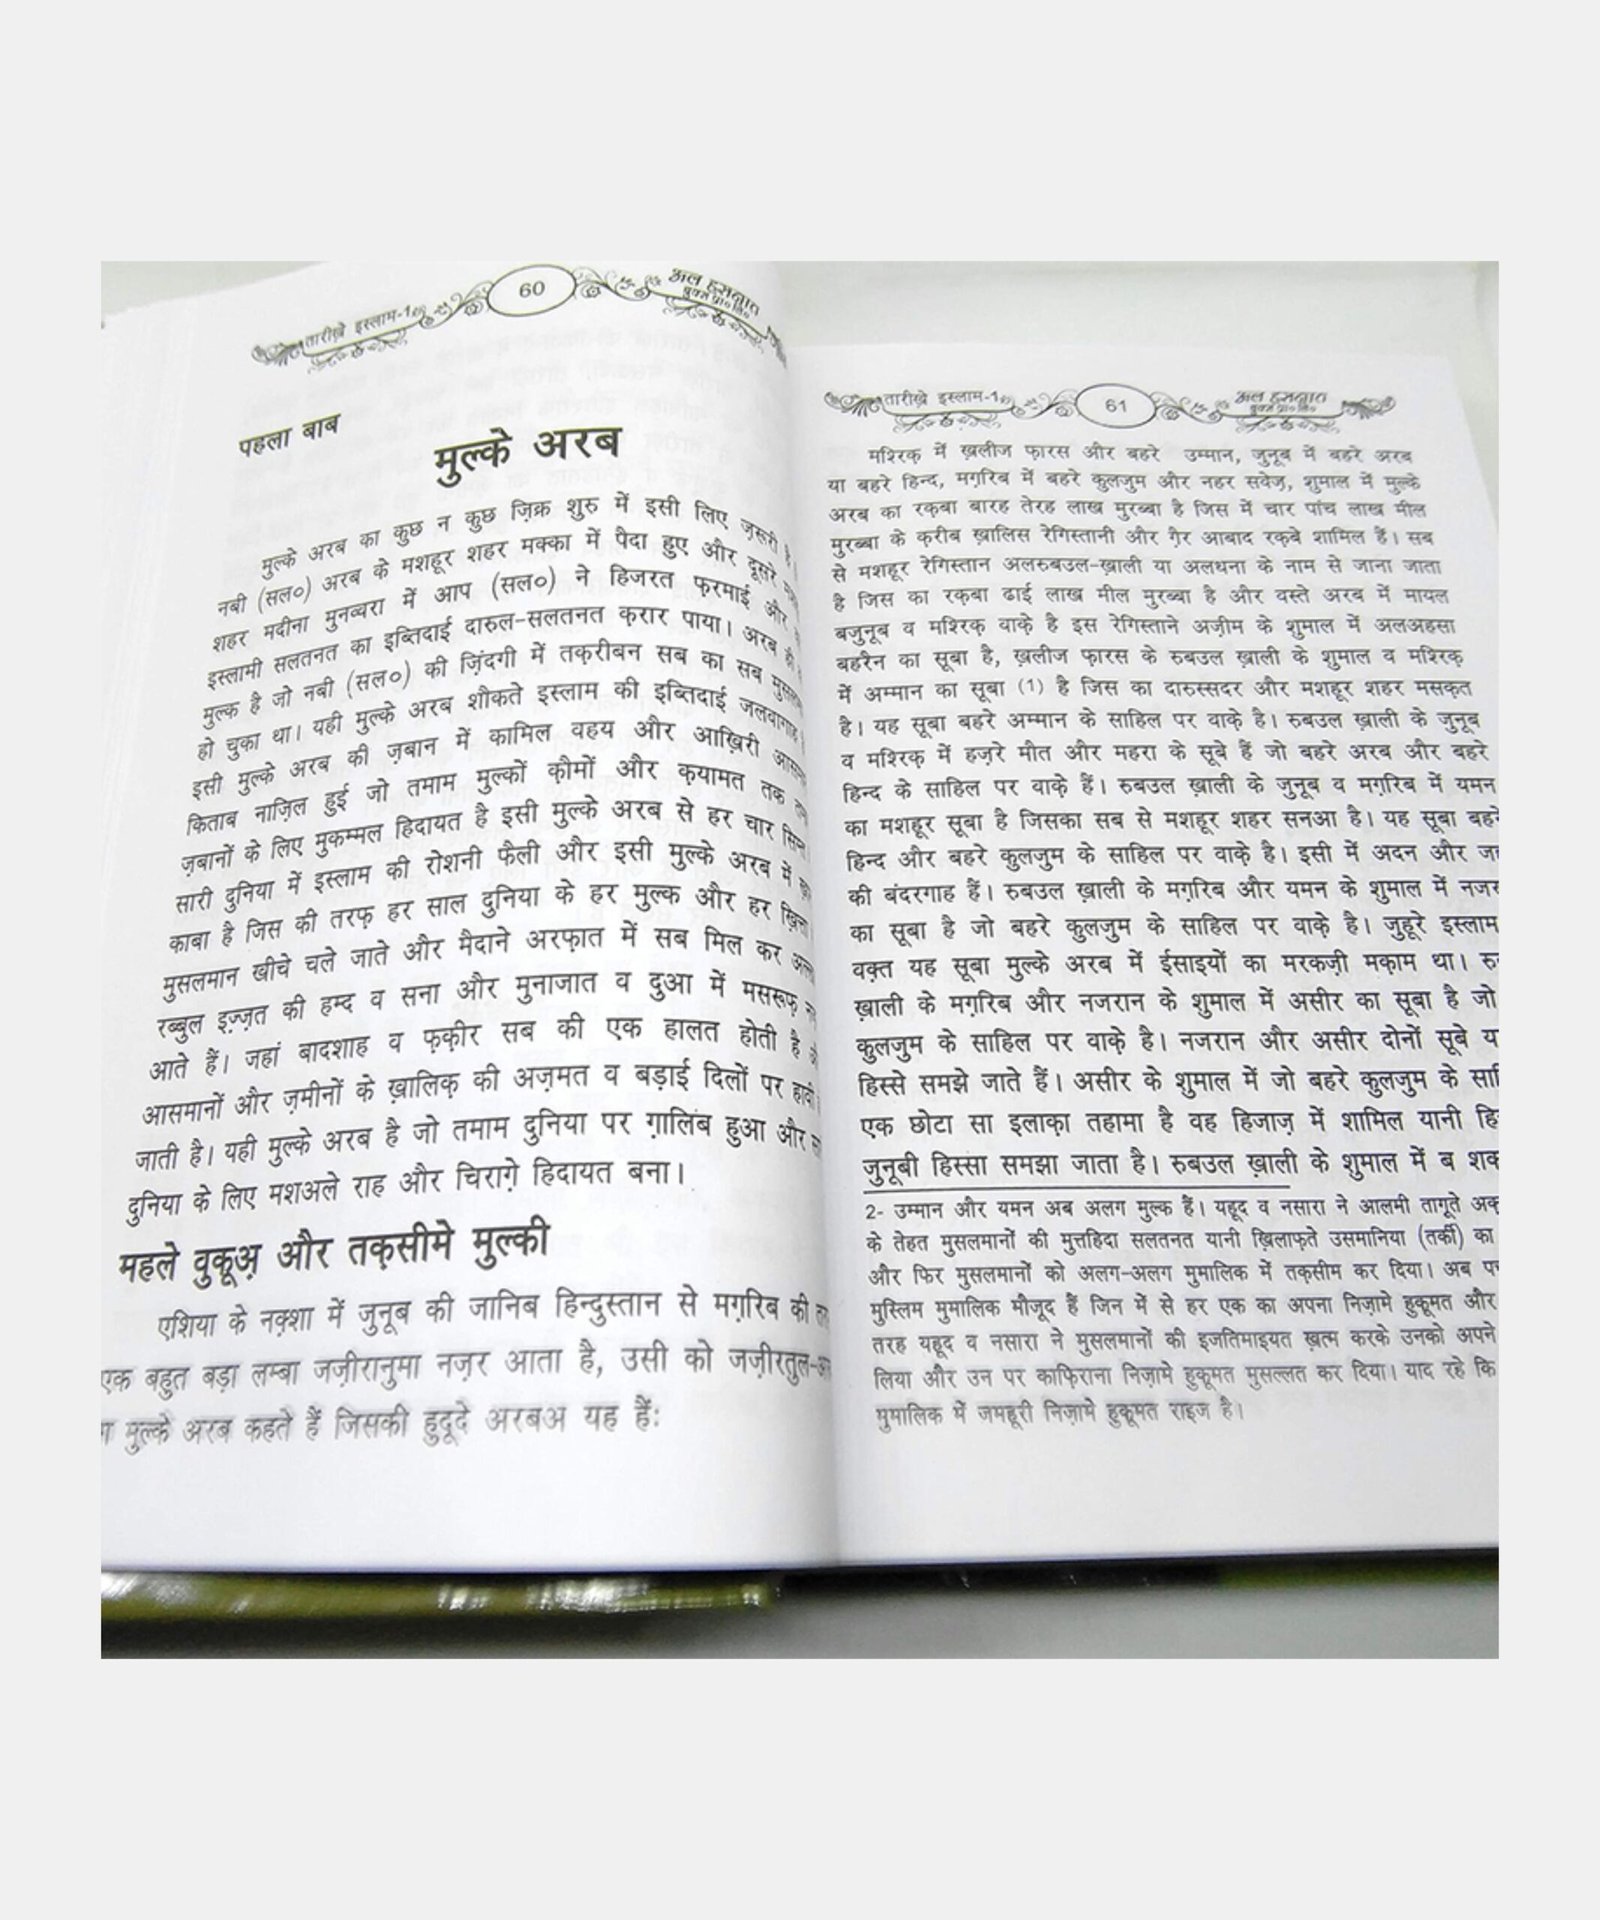 तारीख़े इस्लाम-1
60
अल हसनात
बुक्स प्रा० लि०
पहला बाब
मुल्के अरब
मुल्के अरब का कुछ न कुछ ज़िक्र शुरु में इसी लिए ज़रूरी है।
नबी (सल०) अरब के मशहूर शहर मक्का में पैदा हुए और दूसरे
शहर मदीना मुनव्वरा में आप (सल०) ने हिजरत फ़रमाई और
इस्लामी सलतनत का इब्तिदाई दारुल-सलतनत क़रार पाया। अरब ही
मुल्क है जो नबी (सल०) की ज़िंदगी में तक़रीबन सब का सब
हो चुका था। यही मुल्के अरब शौकते इस्लाम की इब्तिदाई जलवागाह
इसी मुल्के अरब की ज़बान में कामिल वहय और आख़िरी
किताब नाज़िल हुई जो तमाम मुल्कों क़ौमों और क़यामत तक
ज़बानों के लिए मुकम्मल हिदायत है इसी मुल्के अरब से हर चार
सारी दुनिया में इस्लाम की रोशनी फैली और इसी मुल्के अरब में
काबा है जिस की तरफ़ हर साल दुनिया के हर मुल्क और हर
मुसलमान खीचे चले जाते और मैदाने अरफ़ात में सब मिल कर
रब्बुल इज़्ज़त की हम्द व सना और मुनाजात व दुआ में मसरूफ़
आते हैं। जहां बादशाह व फ़क़ीर सब की एक हालत होती है
आसमानों और ज़मीनों के ख़ालिक़ की अज़मत व बड़ाई दिलों पर
जाती है। यही मुल्के अरब है जो तमाम दुनिया पर ग़ालिब हुआ और
दुनिया के लिए मशअले राह और चिराग़े हिदायत बना।
महले वुकूअ़ और तक़सीमे मुल्की
एशिया के नक़्शा में जुनूब की जानिब हिन्दुस्तान से मग़रिब की
एक बहुत बड़ा लम्बा जज़ीरानुमा नज़र आता है, उसी को जज़ीरतुल-
मुल्के अरब कहते हैं जिसकी हुदूदे अरबअ यह हैं:
तारीख़े इस्लाम-1
61
अल हसनात
बुक्स प्रा० लि०
मश्रिक़ में ख़लीज फ़ारस और बहरे उम्मान, जुनूब में बहरे अरब
या बहरे हिन्द, मग़रिब में बहरे कुलजुम और नहर सवेज़, शुमाल में मुल्के
अरब का रक़बा बारह तेरह लाख मुरब्बा है जिस में चार पांच लाख मील
मुरब्बा के क़रीब ख़ालिस रेगिस्तानी और ग़ैर आबाद रक़बे शामिल हैं। सब
से मशहूर रेगिस्तान अलरुबउल-ख़ाली या अलथना के नाम से जाना जाता
है जिस का रक़बा ढाई लाख मील मुरब्बा है और वस्ते अरब में मायल
बजुनूब व मश्रिक़ वाक़े है इस रेगिस्ताने अज़ीम के शुमाल में अलअहसा
बहरैन का सूबा है, ख़लीज फ़ारस के रुबउल ख़ाली के शुमाल व मश्रिक़
में अम्मान का सूबा (1) है जिस का दारुस्सदर और मशहूर शहर मसक़त
है। यह सूबा बहरे अम्मान के साहिल पर वाक़े है। रुबउल ख़ाली के जुनूब
व मश्रिक़ में हज़रे मौत और महरा के सूबे हैं जो बहरे अरब और बहरे
हिन्द के साहिल पर वाक़े हैं। रुबउल ख़ाली के जुनूब व मग़रिब में यमन
का मशहूर सूबा है जिसका सब से मशहूर शहर सनआ है। यह सूबा बहरे
हिन्द और बहरे कुलजुम के साहिल पर वाक़े है। इसी में अदन और
की बंदरगाह हैं। रुबउल ख़ाली के मग़रिब और यमन के शुमाल में
का सूबा है जो बहरे कुलजुम के साहिल पर वाक़े है। जुहूरे इस्लाम
वक़्त यह सूबा मुल्के अरब में ईसाइयों का मरकज़ी मक़ाम था।
ख़ाली के मग़रिब और नजरान के शुमाल में असीर का सूबा है जो
कुलजुम के साहिल पर वाक़े है। नजरान और असीर दोनों सूबे
हिस्से समझे जाते हैं। असीर के शुमाल में जो बहरे कुलजुम के
एक छोटा सा इलाक़ा तहामा है वह हिजाज़ में शामिल यानी
जुनूबी हिस्सा समझा जाता है। रुबउल ख़ाली के शुमाल में ब
2- उम्मान और यमन अब अलग मुल्क हैं। यहूद व नसारा ने आलमी तागूते
के तेहत मुसलमानों की मुत्तहिदा सलतनत यानी ख़िलाफ़ते उसमानिया (तर्की) का
और फिर मुसलमानों को अलग-अलग मुमालिक में तक़सीम कर दिया। अब
मुस्लिम मुमालिक मौजूद हैं जिन में से हर एक का अपना निज़ामे हुकूमत और
तरह यहूद व नसारा ने मुसलमानों की इजतिमाइयत ख़त्म करके उनको अपने
लिया और उन पर काफ़िराना निज़ामे हुकूमत मुसल्लत कर दिया। याद रहे कि
मुमालिक में जमहूरी निज़ामे हुकूमत राइज है।